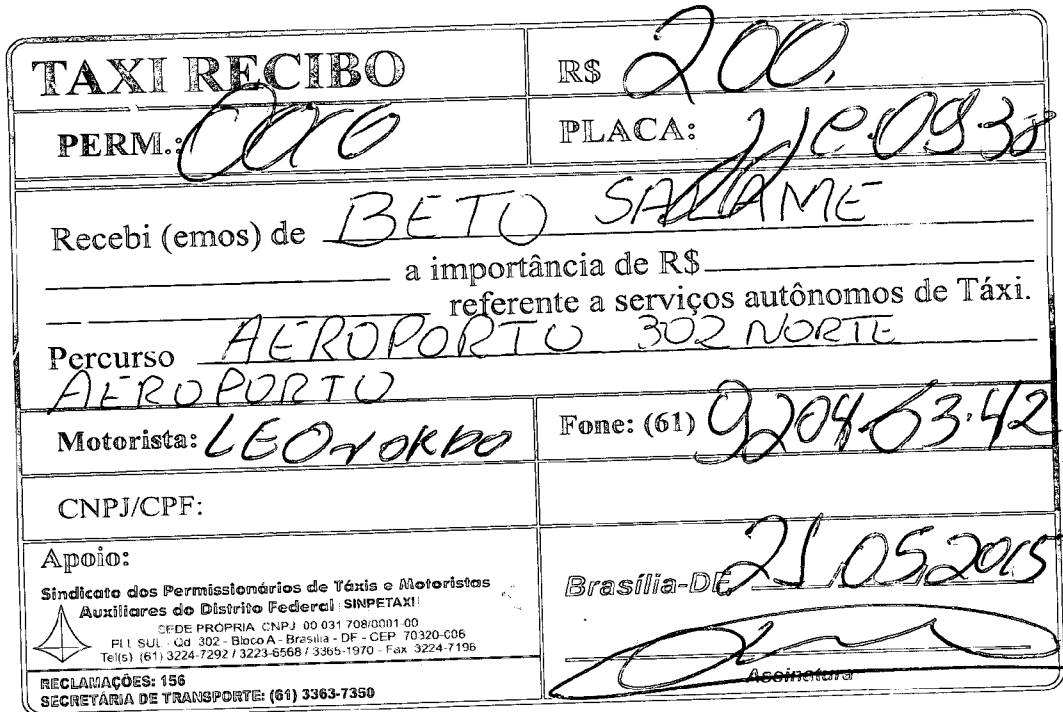 TAXI RECIBO
R$ 200,
PERM.:
PLACA:
Recebi (emos) de BETO SALAME
a importância de R$
referente a serviços autônomos de Táxi.
Percurso AEROPORTO 302 NORTE
AEROPORTO
Motorista: LEONARDO
Fone: (61) 9204-63-42
CNPJ/CPF:
Apoio:
Sindicato dos Permissionários de Táxis e Motoristas
Auxiliares do Distrito Federal SINPETAXI
SEDE PRÓPRIA CNPJ 00 031 708/0001-00
Qd 302 - Bloco A - Brasília - DF - CEP 70320-006
Tel(s) (61) 3224-7292 / 3223-6568 / 3365-1970 - Fax 3224-7196
RECLAMAÇÕES: 156
SECRETÁRIA DE TRANSPORTE: (61) 3363-7350
Brasília-DF 21 05 2015
Assinatura